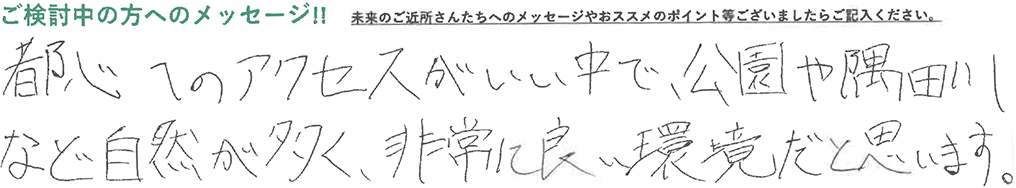 ご検討中の方へのメッセージ!! 未来のご近所さんたちへのメッセージやおススメのポイント等ございましたらご記入ください。
都心へのアクセスがいい中で、公園や隅田川
など自然が多く、非常に良い環境だと思います。